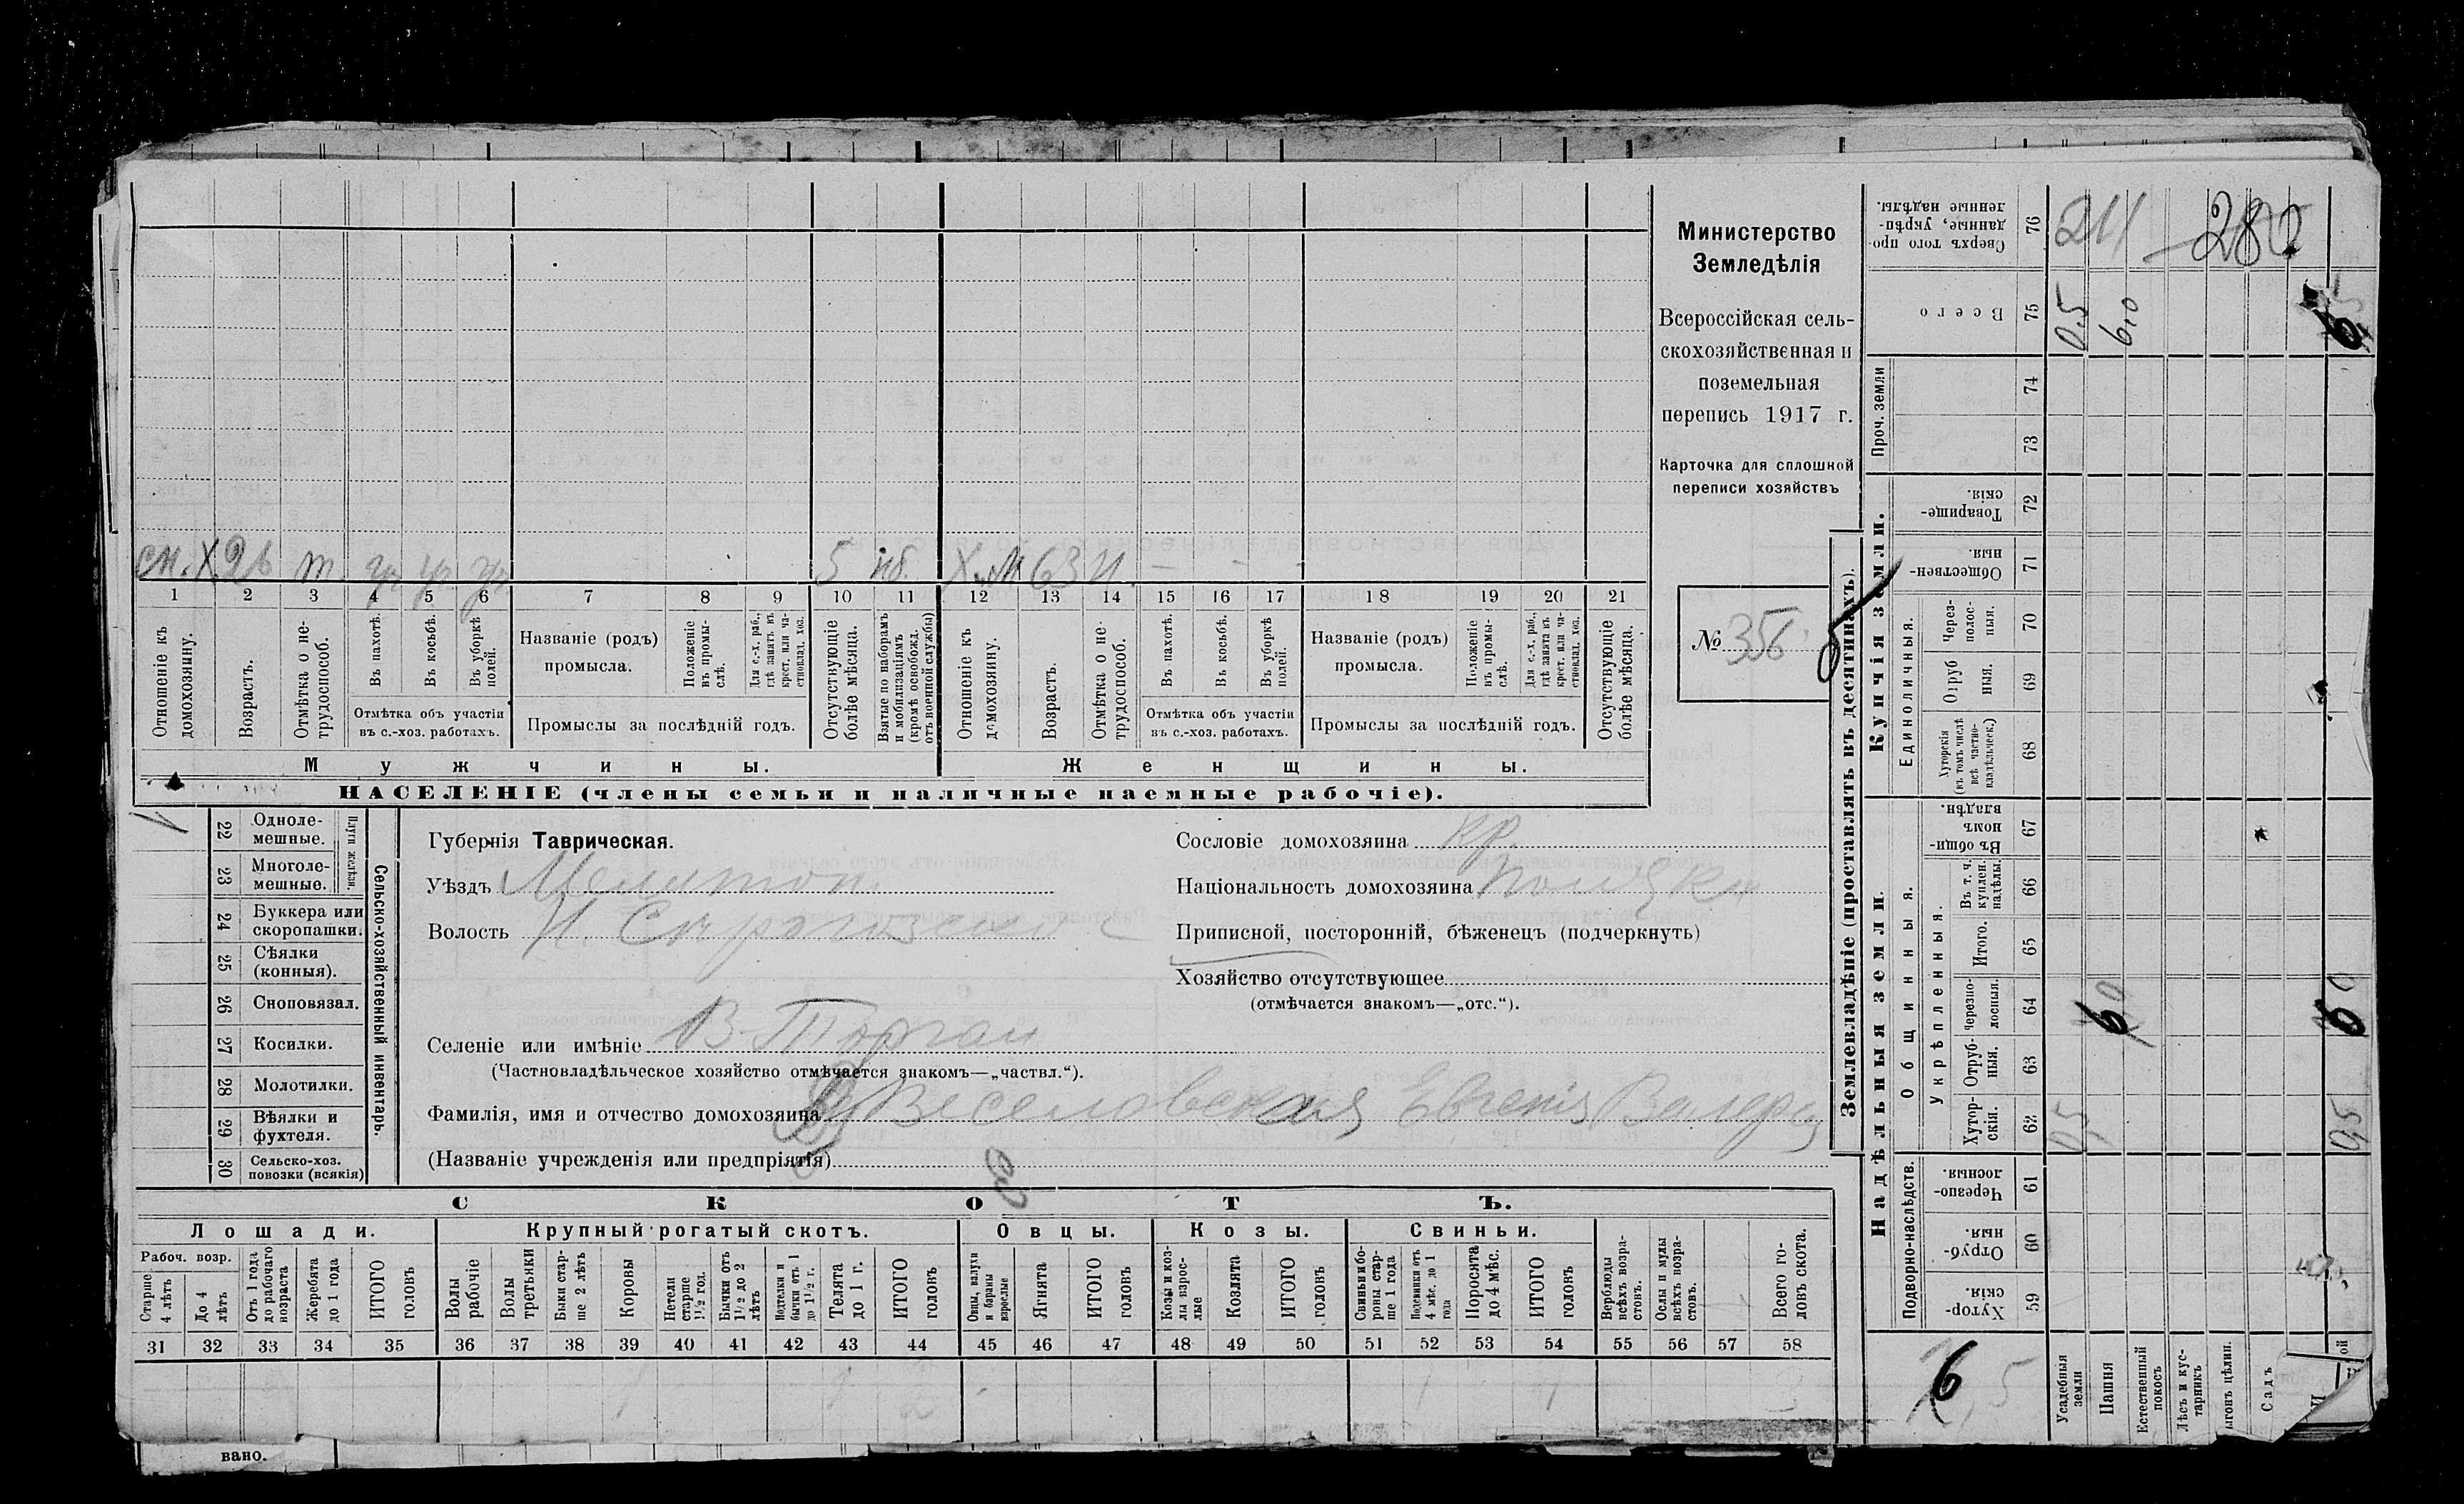 Министерство
Земледѣлія
Всероссійская сель-
скохозяйственная и
поземельная
перепись 1917 г.
Карточка для сплошной
переписи хозяйствъ
№ 356
сн. Х. 26 т. 5 Х. 63 н. - - -
1 2 3 4 5 6 7 8 9 10 11 12 13 14 15 16 17 18 19 20 21
Отношеніе къ домохозяину.
Возрастъ.
Отмѣтка о не-трудоспособ.
Въ пахотѣ.
Въ косьбѣ.
Въ уборкѣ полей.
Отмѣтка объ участіи
въ с.-хоз. работахъ.
Названіе (родъ)
промысла.
Положеніе въ промы-слѣ.
Для с.-х. раб., гдѣ занятъ въ крест. или ча-стновлад. хоз.
Промыслы за послѣдній годъ.
Отсутствующіе болѣе мѣсяца.
Взятые по наборамъ и мобилизаціямъ (кромѣ освобожд. отъ военной службы)
Отношеніе къ домохозяину.
Возрастъ.
Отмѣтка о не-трудоспособ.
Въ пахотѣ.
Въ косьбѣ.
Въ уборкѣ полей.
Отмѣтка объ участіи
въ с.-хоз. работахъ.
Названіе (родъ)
промысла.
Положеніе въ промы-слѣ.
Для с.-х. раб., гдѣ занята въ крест. или ча-стновлад. хоз.
Промыслы за послѣдній годъ.
Отсутствующіе болѣе мѣсяца.
Мужчины. Женщины.
НАСЕЛЕНІЕ (члены семьи и наличные наемные рабочіе).
22 Одноле-мешные.
23 Многоле-мешные.
Плуги желѣзн.
24 Буккера или скоропашки.
25 Сѣялки (конныя).
26 Сноповязал.
27 Косилки.
28 Молотилки.
29 Вѣялки и фухтеля.
30 Сельско-хоз. повозки (всякія)
Сельско-хозяйственный инвентарь.
Губернія Таврическая.
Уѣздъ Мелитоп.
Волость Н. Сѣрогозской
Селеніе или имѣніе В-Торгаи
(Частновладѣльческое хозяйство отмѣчается знакомъ—„частвл.“).
Фамилія, имя и отчество домохозяина Веселовская Евгенія Валер
(Названіе учрежденія или предпріятія)
Сословіе домохозяина кр.
Національность домохозяина
Приписной, посторонній, бѣженецъ (подчеркнуть)
Хозяйство отсутствующее
(отмѣчается знакомъ—„отс.“).
СКОТЪ.
Лошади. Крупный рогатый скотъ. Овцы. Козы. Свиньи.
Рабоч. возр.
Старше 4 лѣтъ
До 4 лѣтъ
Отъ 1 года до рабочаго возраста
Жеребята до 1 года
ИТОГО головъ
Волы рабочіе
Волы третьяки
Быки стар-ше 2 лѣтъ
Коровы
Нетели старше 1½ год.
Бычки отъ 1½ до 2 лѣтъ
Подтелки и бычки отъ 1 до 1½ г.
Телята до 1 г.
ИТОГО головъ
Овцы, валухи и бараны взрослые
Ягнята
ИТОГО головъ
Козы и коз-лы взрос-лые
Козлята
ИТОГО головъ
Свиньи и бо-роны стар-ше 1 года
Подсвинки отъ 4 мѣс. до 1 года
Поросята до 4 мѣс.
ИТОГО головъ
Верблюды всѣхъ возра-стовъ.
Ослы и мулы всѣхъ возра-стовъ.
Всего го-ловъ скота.
31 32 33 34 35 36 37 38 39 40 41 42 43 44 45 46 47 48 49 50 51 52 53 54 55 56 57 58
1 1 2 1 1 3
Землевладѣніе (проставлять въ десятинахъ).
Надѣльныя земли. Купчія земли. Проч. земли
Подворно-наслѣдств. Общинныя. Укрѣпленныя. Единоличныя.
59 Хутор-скія.
60 Отруб-ныя.
61 Черезпо-лосныя
62 Хутор-скія.
63 Отруб-ныя.
64 Черезпо-лосныя.
65 Итого.
66 Въ т. ч. куплен. надѣлы.
67 Въ общи-номъ владѣн.
68 Хуторскія (въ томъ числѣ всѣ частно-владѣльческ.)
69 Отруб ныя.
70 Через-полос-ныя.
71 Обществен-ныя.
72 Товарище-скія.
73
74
75 Всего
76 Сверхъ того про-данные, укрѣп-ленные надѣлы.
Усадебныя земли 0,5 0,5
Пашня 6 6,0
Естественный покосъ
Лѣсъ и кус-тарникъ
ыгонъ цѣлин.
Садъ
6
211
280
вано.